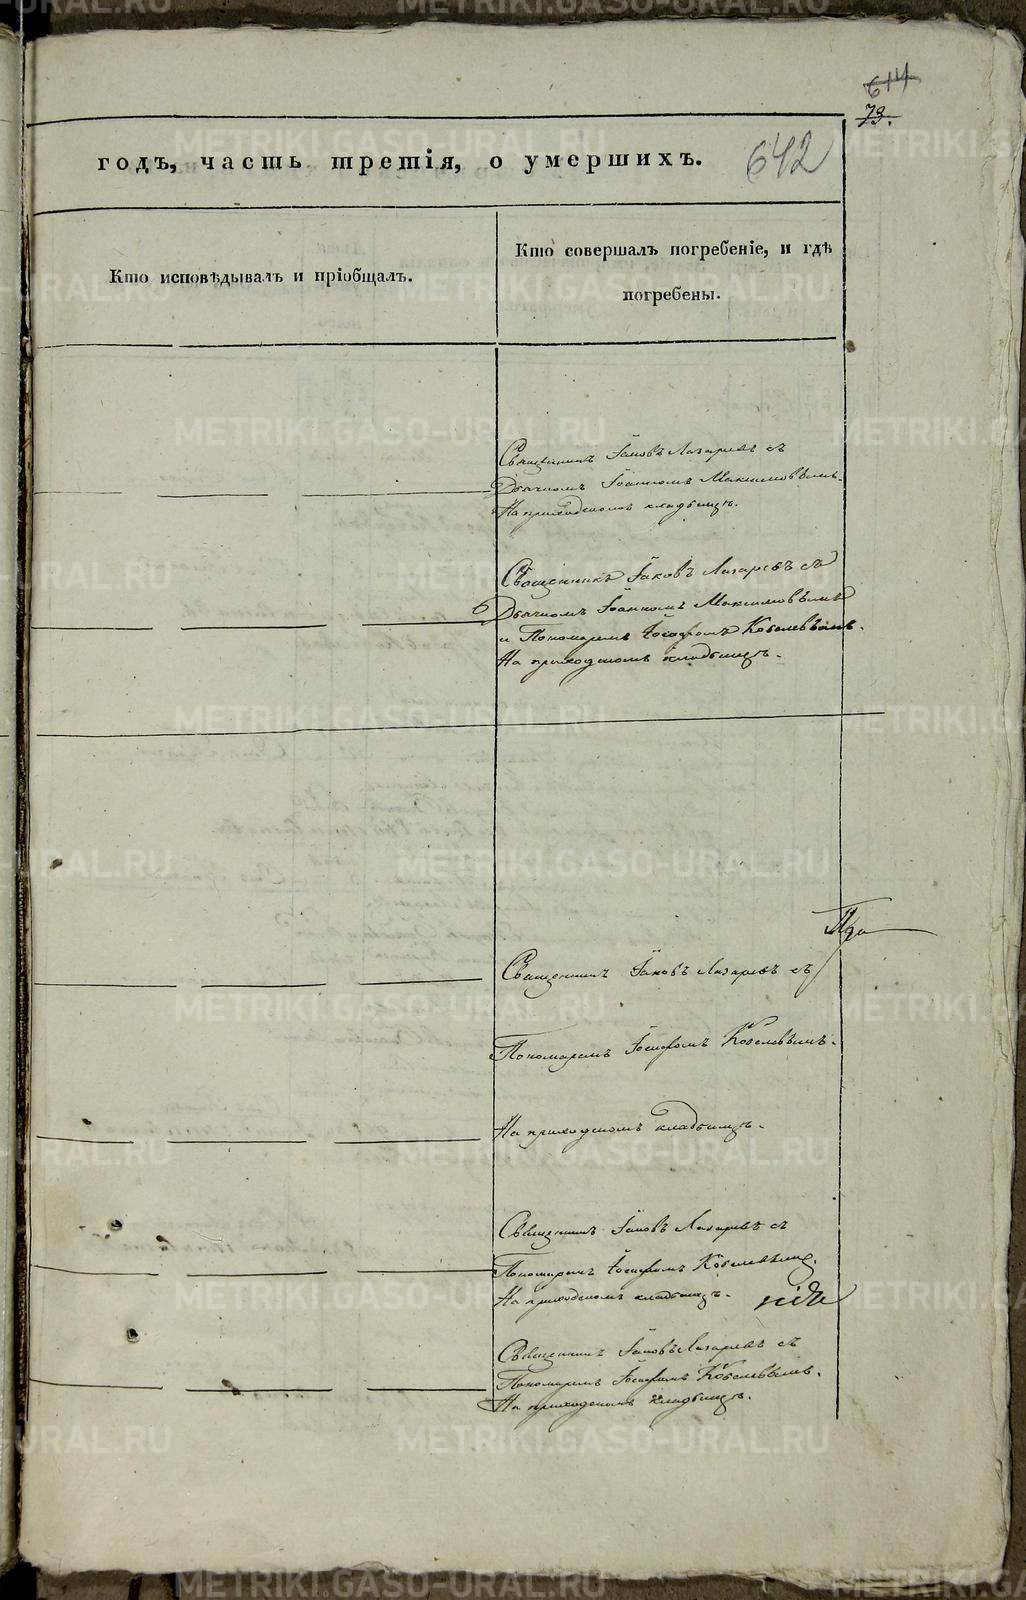 614
73.
642
годъ, часть третія, о умершихъ.
Кто исповѣдывалъ и пріобщалъ.
Кто совершалъ погребеніе, и гдѣ
погребены.
Священникъ Іаковъ Лазаревъ съ
Дьячкомъ Іоанномъ Максимовымъ.
На приходскомъ кладбищѣ.
Священникъ Іаковъ Лазаревъ съ
Дьячкомъ Іоанномъ Максимовымъ
и Пономаремъ Іосифомъ Кобелевымъ.
На приходскомъ кладбищѣ.
Священникъ Іаковъ Лазаревъ съ
Пономаремъ Іосифомъ Кобелевымъ.
На приходскомъ кладбищѣ.
Священникъ Іаковъ Лазаревъ съ
Пономаремъ Іосифомъ Кобелевымъ.
На приходскомъ кладбищѣ.
Священникъ Іаковъ Лазаревъ съ
Пономаремъ Іосифомъ Кобелевымъ.
На приходскомъ кладбищѣ.
METRIKI.GASO-URAL.RU